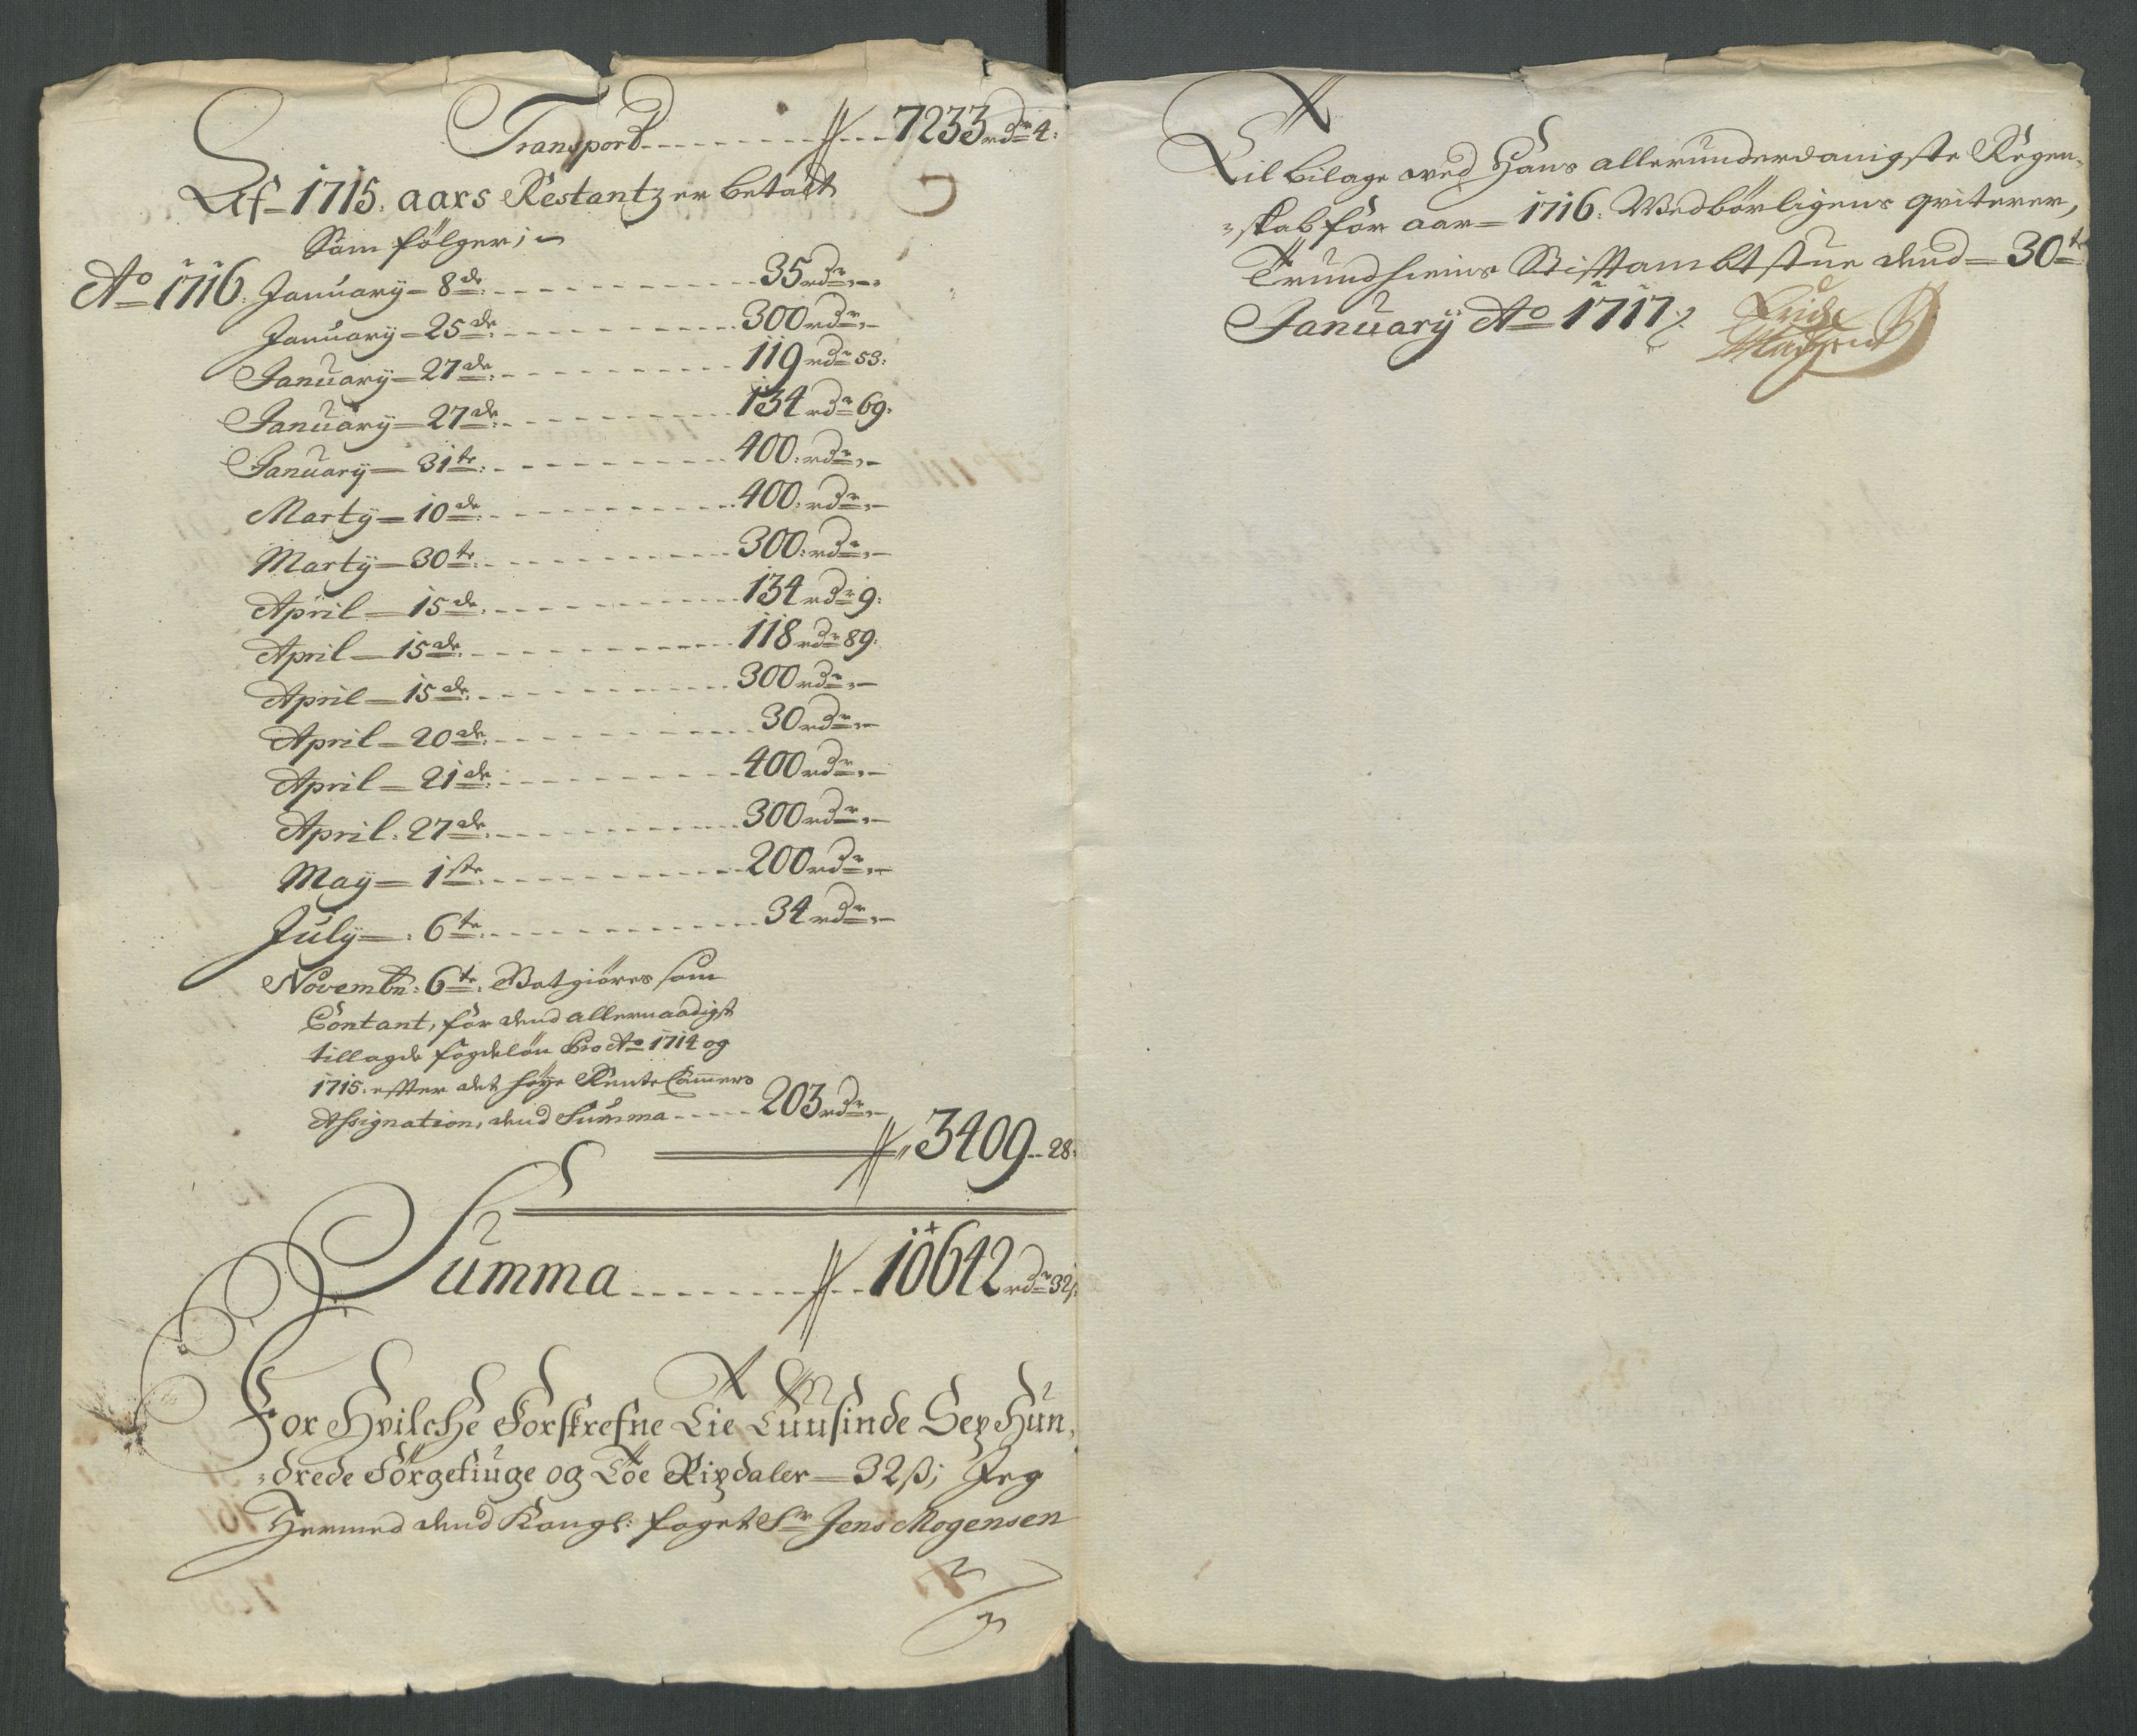 Transport - - - - - - - - - 7233 rdr 4:
Af 1715. aars Restantz er betalt
Som følger;
Ao 1716. January 8de: - - - - - - - - - 35 rdr,-
January 25de: - - - - - - - - - 300 rdr,-
January 27de: - - - - - - - - - 119 rdr 53:
January 27de: - - - - - - - - - 134 rdr 69:
January 31te: - - - - - - - - - 400: rdr,-
Marty 10de: - - - - - - - - - 400: rdr,-
Marty 30te: - - - - - - - - - 300: rdr,-
April 15de: - - - - - - - - - 134 rdr 9:
April 15de: - - - - - - - - - 118 rdr 89:
April 15de: - - - - - - - - - 300 rdr,-
April 20de: - - - - - - - - - 30 rdr,-
April 21de: - - - - - - - - - 400 rdr,-
April. 27de: - - - - - - - - - 300 rdr,-
May 1ste: - - - - - - - - - 200 rdr,-
July: 6te: - - - - - - - - - 34 rdr,-
Novembr: 6te: Gotgiøres som
Contant, for dend allernaadigst
tillagde fogdeløn Pro Ao 1714 og
1715. efter det høye Rente Cammers
Assignation, dend Summa - - - - - 203 rdr,-
3409 - 28:
Summa - - - - - - - - - 10642 rdr 32 ß:
For Hvilche Forskrefne Tie Tuusinde Sex Hun,
drede Förgetiuge og Toe Rixdaler 32 ß; Jeg
Hermed dend Kongl: foget Sr Jens Mogensen
Til bilage ved Hans allerunderdanigste Regen,
skab for aar 1716. Vedbørligens qviterer,
Trundhiems Stiftambtstue dend 30te
January Ao 1717